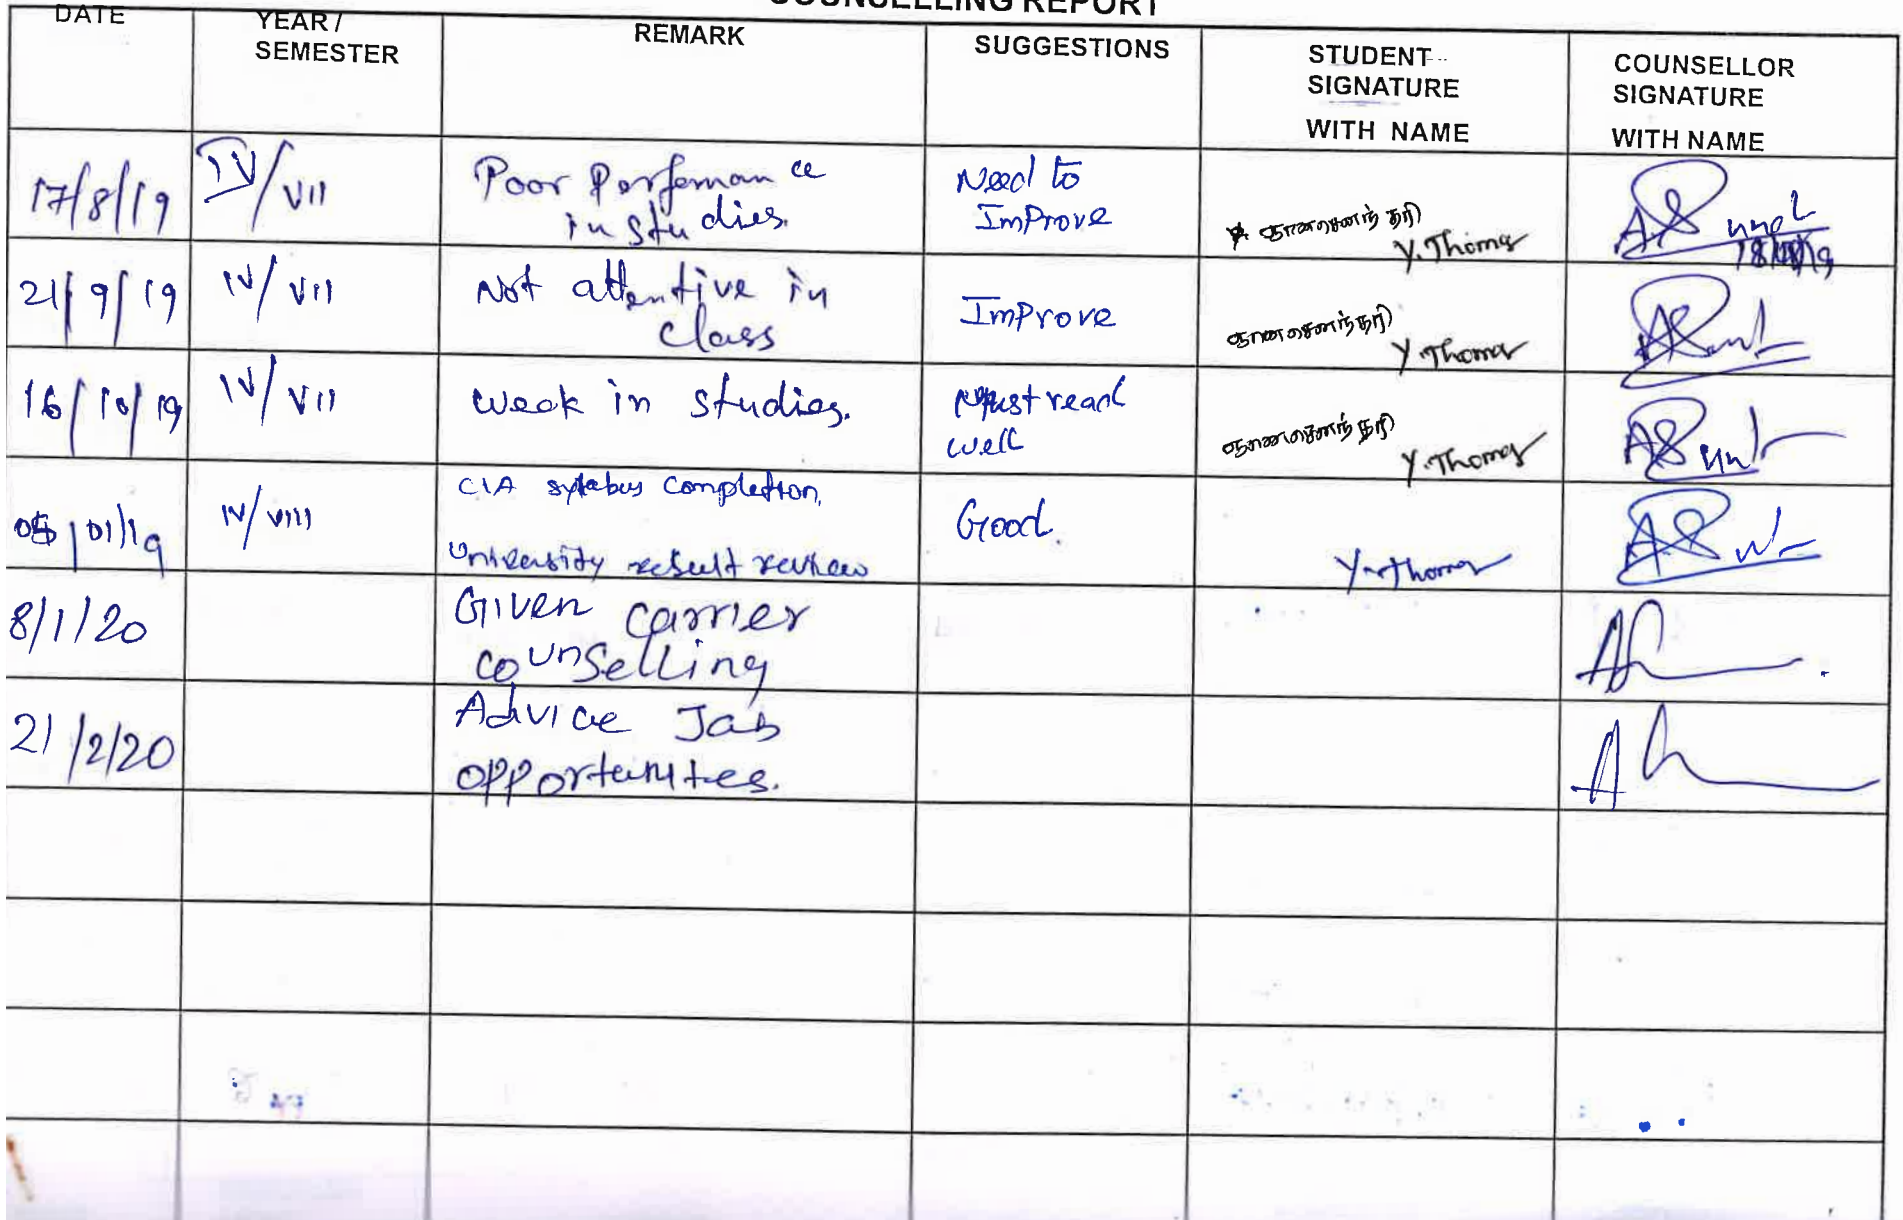 COUNSELLING REPORT
DATE
YEAR /
SEMESTER
REMARK
SUGGESTIONS
STUDENT
SIGNATURE
WITH NAME
COUNSELLOR
SIGNATURE
WITH NAME
17/8/19
IV/VII
Poor Performance
in studies.
Need to
Improve
Y.Thomas
21/9/19
IV/VII
Not attentive in
class
Improve
Y.Thomas
16/10/19
IV/VII
week in studies.
must read
well
Y.Thomas
05/01/19
IV/VIII
CIA sylabus completion,
University result review
Good.
Y.Thomas
8/1/20
Given carrier
counselling
21/2/20
Advice Job
opportunites.